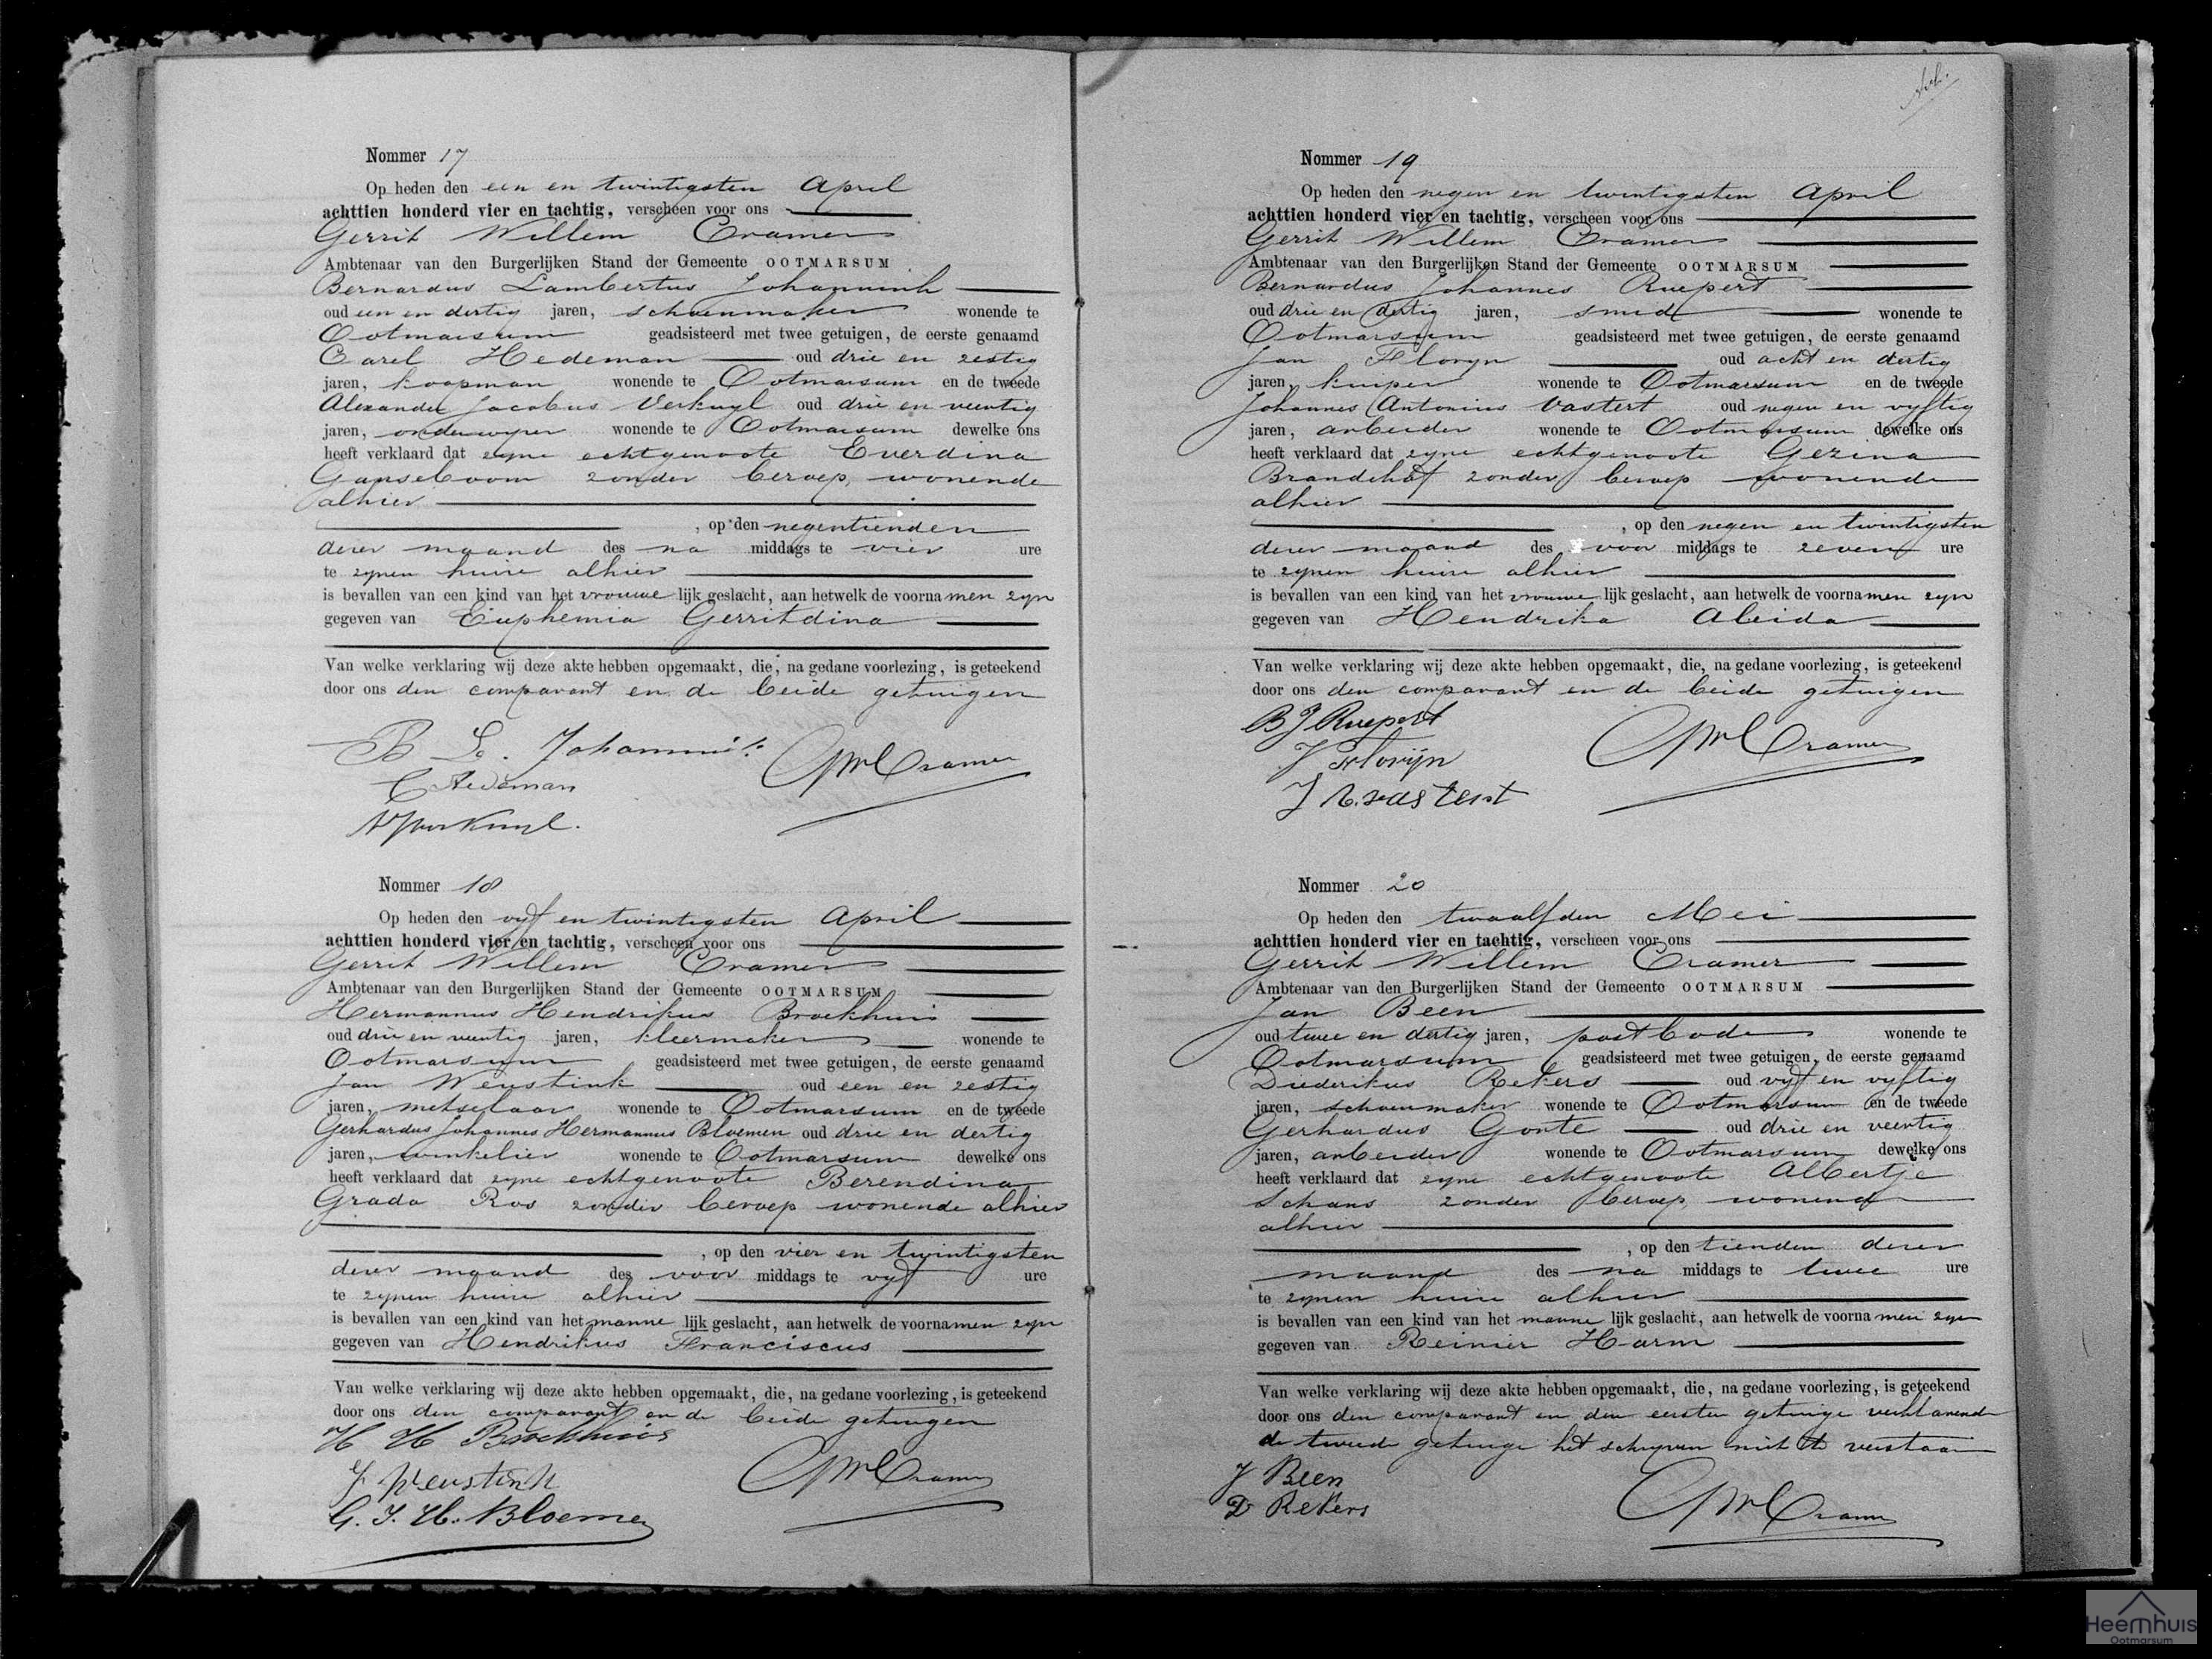 Nommer 17
Op heden den een en twintigsten April
achttien honderd vier en tachtig, verscheen voor ons
Gerrit Willem Cramer
Ambtenaar van den Burgerlijken Stand der Gemeente OOTMARSUM
Bernardus Lambertus Johannink
oud een en dertig jaren, schoenmaker wonende te
Ootmarsum geadsisteerd met twee getuigen, de eerste genaamd
Carel Hedeman oud drie en zestig
jaren, koopman wonende te Ootmarsum en de tweede
Alexander Jacobus Verkuyl oud drie en veertig
jaren, onderwyzer wonende te Ootmarsum dewelke ons
heeft verklaard dat zyne echtgenoote Everdina
Ganseboom zonder beroep, wonende
alhier
, op den negentienden
dezer maand des na middags te vier ure
te zynen huize alhier
is bevallen van een kind van het vrouwe lijk geslacht, aan hetwelk de voorna men zyn
gegeven van Euphemia Gerritdina
Van welke verklaring wij deze akte hebben opgemaakt, die, na gedane voorlezing, is geteekend
door ons den comparant en de beide getuigen
B L. Johannink
GWCramer
C Hedeman
AJVerkuyl.
Nommer 18
Op heden den vyf en twintigsten April
achttien honderd vier en tachtig, verscheen voor ons
Gerrit Willem Cramer
Ambtenaar van den Burgerlijken Stand der Gemeente OOTMARSUM
Hermannus Hendrikus Broekhuis
oud drie en veertig jaren, kleermaker wonende te
Ootmarsum geadsisteerd met twee getuigen, de eerste genaamd
Jan Weustink oud een en zestig
jaren, metselaar wonende te Ootmarsum en de tweede
Gerhardus Johannes Hermannus Bloemen oud drie en dertig
jaren, winkelier wonende te Ootmarsum dewelke ons
heeft verklaard dat zyne echtgenoote Berendina
Grada Ros zonder beroep wonende alhier
, op den vier en twintigsten
dezer maand des voor middags te vyf ure
te zynen huize alhier
is bevallen van een kind van het manne lijk geslacht, aan hetwelk de voornamen zyn
gegeven van Hendrikus Franciscus
Van welke verklaring wij deze akte hebben opgemaakt, die, na gedane voorlezing, is geteekend
door ons den comparant en de beide getuigen
H H Broekhuis
J Weustink
GWCramer
G. J. H. Bloemen
Nommer 19
Op heden den negen en twintigsten April
achttien honderd vier en tachtig, verscheen voor ons
Gerrit Willem Cramer
Ambtenaar van den Burgerlijken Stand der Gemeente OOTMARSUM
Bernardus Johannes Ruepert
oud drie en dertig jaren, smid wonende te
Ootmarsum geadsisteerd met twee getuigen, de eerste genaamd
Jan Floryn oud acht en dertig
jaren, kuiper wonende te Ootmarsum en de tweede
Johannes Antonius Vastert oud negen en vyftig
jaren, arbeider wonende te Ootmarsum dewelke ons
heeft verklaard dat zyne echtgenoote Gezina
Brandehof zonder beroep wonende
alhier
, op den negen en twintigsten
dezer maand des voor middags te zeven ure
te zynen huize alhier
is bevallen van een kind van het vrouwe lijk geslacht, aan hetwelk de voornamen zyn
gegeven van Hendrika Aleida
Van welke verklaring wij deze akte hebben opgemaakt, die, na gedane voorlezing, is geteekend
door ons den comparant en de beide getuigen
B J Ruepert
GWCramer
J Florijn
J A. Vastert
Nommer 20
Op heden den twaalfden Mei
achttien honderd vier en tachtig, verscheen voor ons
Gerrit Willem Cramer
Ambtenaar van den Burgerlijken Stand der Gemeente OOTMARSUM
Jan Been
oud twee en dertig jaren, postbode wonende te
Ootmarsum geadsisteerd met twee getuigen, de eerste genaamd
Diederikus Rekers oud vyf en vyftig
jaren, schoenmaker wonende te Ootmarsum en de tweede
Gerhardus Gonte oud drie en veertig
jaren, arbeider wonende te Ootmarsum dewelke ons
heeft verklaard dat zyne echtgenoote Albertje
Schans zonder beroep, wonend
alhier
, op den tienden dezer
maand des na middags te twee ure
te zynen huize alhier
is bevallen van een kind van het manne lijk geslacht, aan hetwelk de voornamen zyn
gegeven van Reinier Harm
Van welke verklaring wij deze akte hebben opgemaakt, die, na gedane voorlezing, is geteekend
door ons den comparant en den eersten getuige verklarende
de tweede getuige het schryven niet te verstaan
J Been
D Rekers
GWCramer
Heemhuis
Ootmarsum